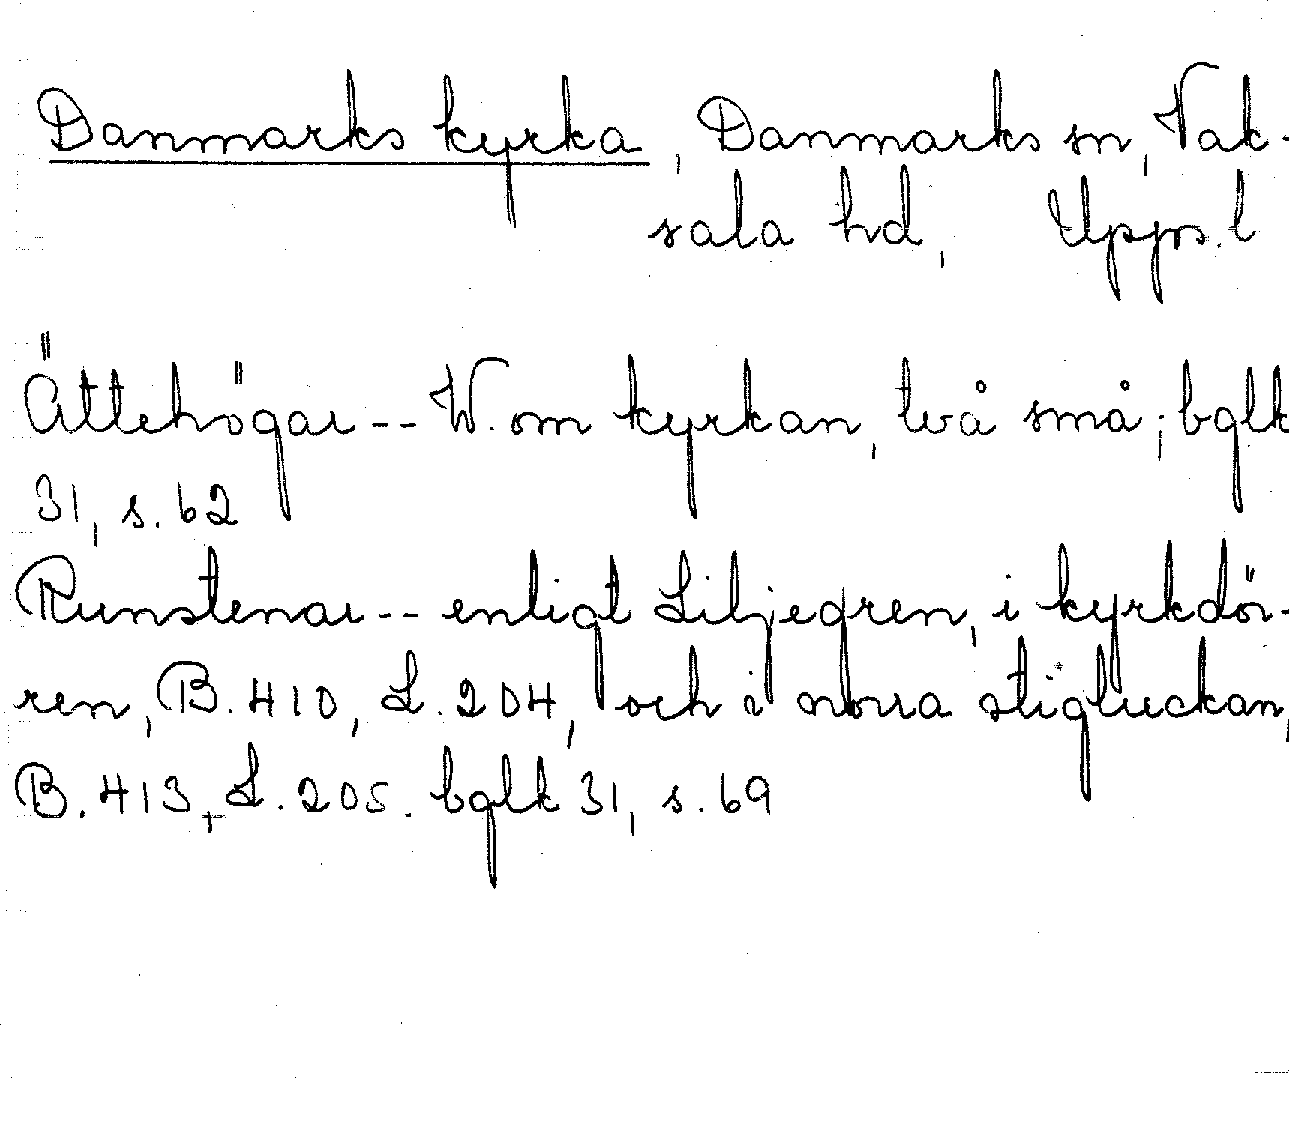 Danmarks kyrka, Danmarks sn, Vak-
sala hd, Upps. l
Ättehögar -- W. om kyrkan, två små; bglk
31, s. 62
Runstenar -- enligt Liljegren, i kyrkdör-
ren, B. 410, L. 204, och i norra stigluckan,
B. 413, L. 205. bglk 31, s. 69